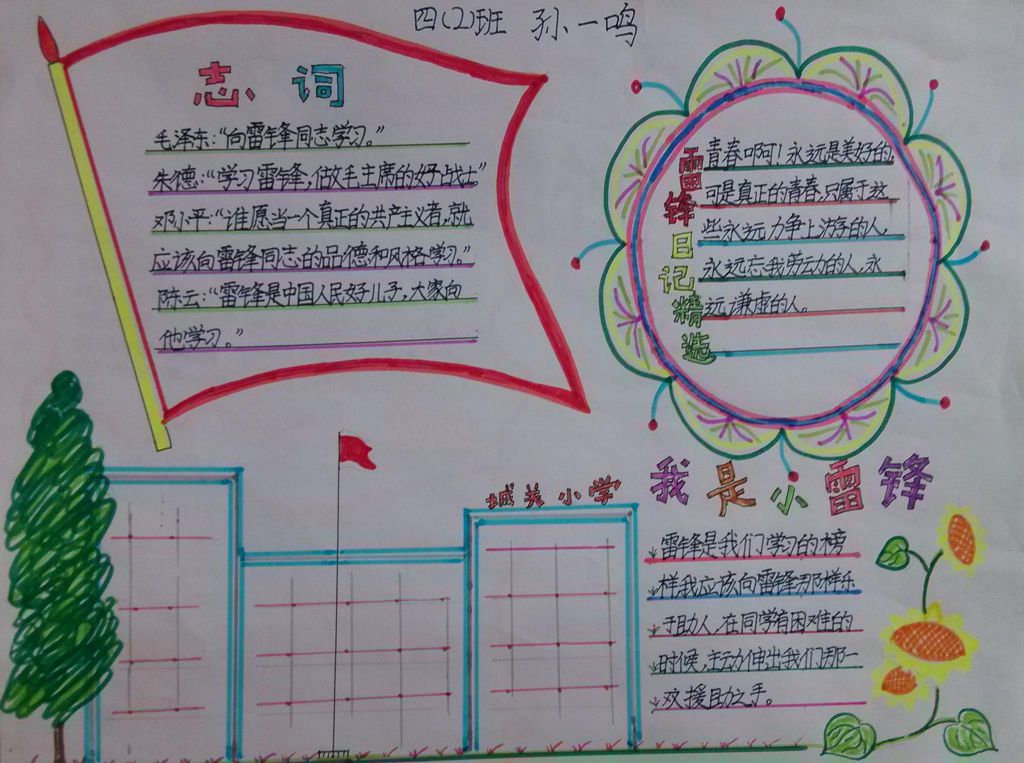 四(2)班 孙一鸣
志词
毛泽东:“向雷锋同志学习。”
朱德:“学习雷锋,做毛主席的好战士”
邓小平:“谁愿当一个真正的共产主义者,就
应该向雷锋同志的品德和风格学习。”
陈云:“雷锋是中国人民好儿子,大家向
他学习。”
雷锋日记精选
青春啊!永远是美好的,
可是真正的青春,只属于这
些永远力争上游的人,
永远忘我劳动的人,永
远谦虚的人。
城关小学
我是小雷锋
雷锋是我们学习的榜
样我应该向雷锋那样乐
于助人,在同学有困难的
时候,主动伸出我们那一
双援助之手。